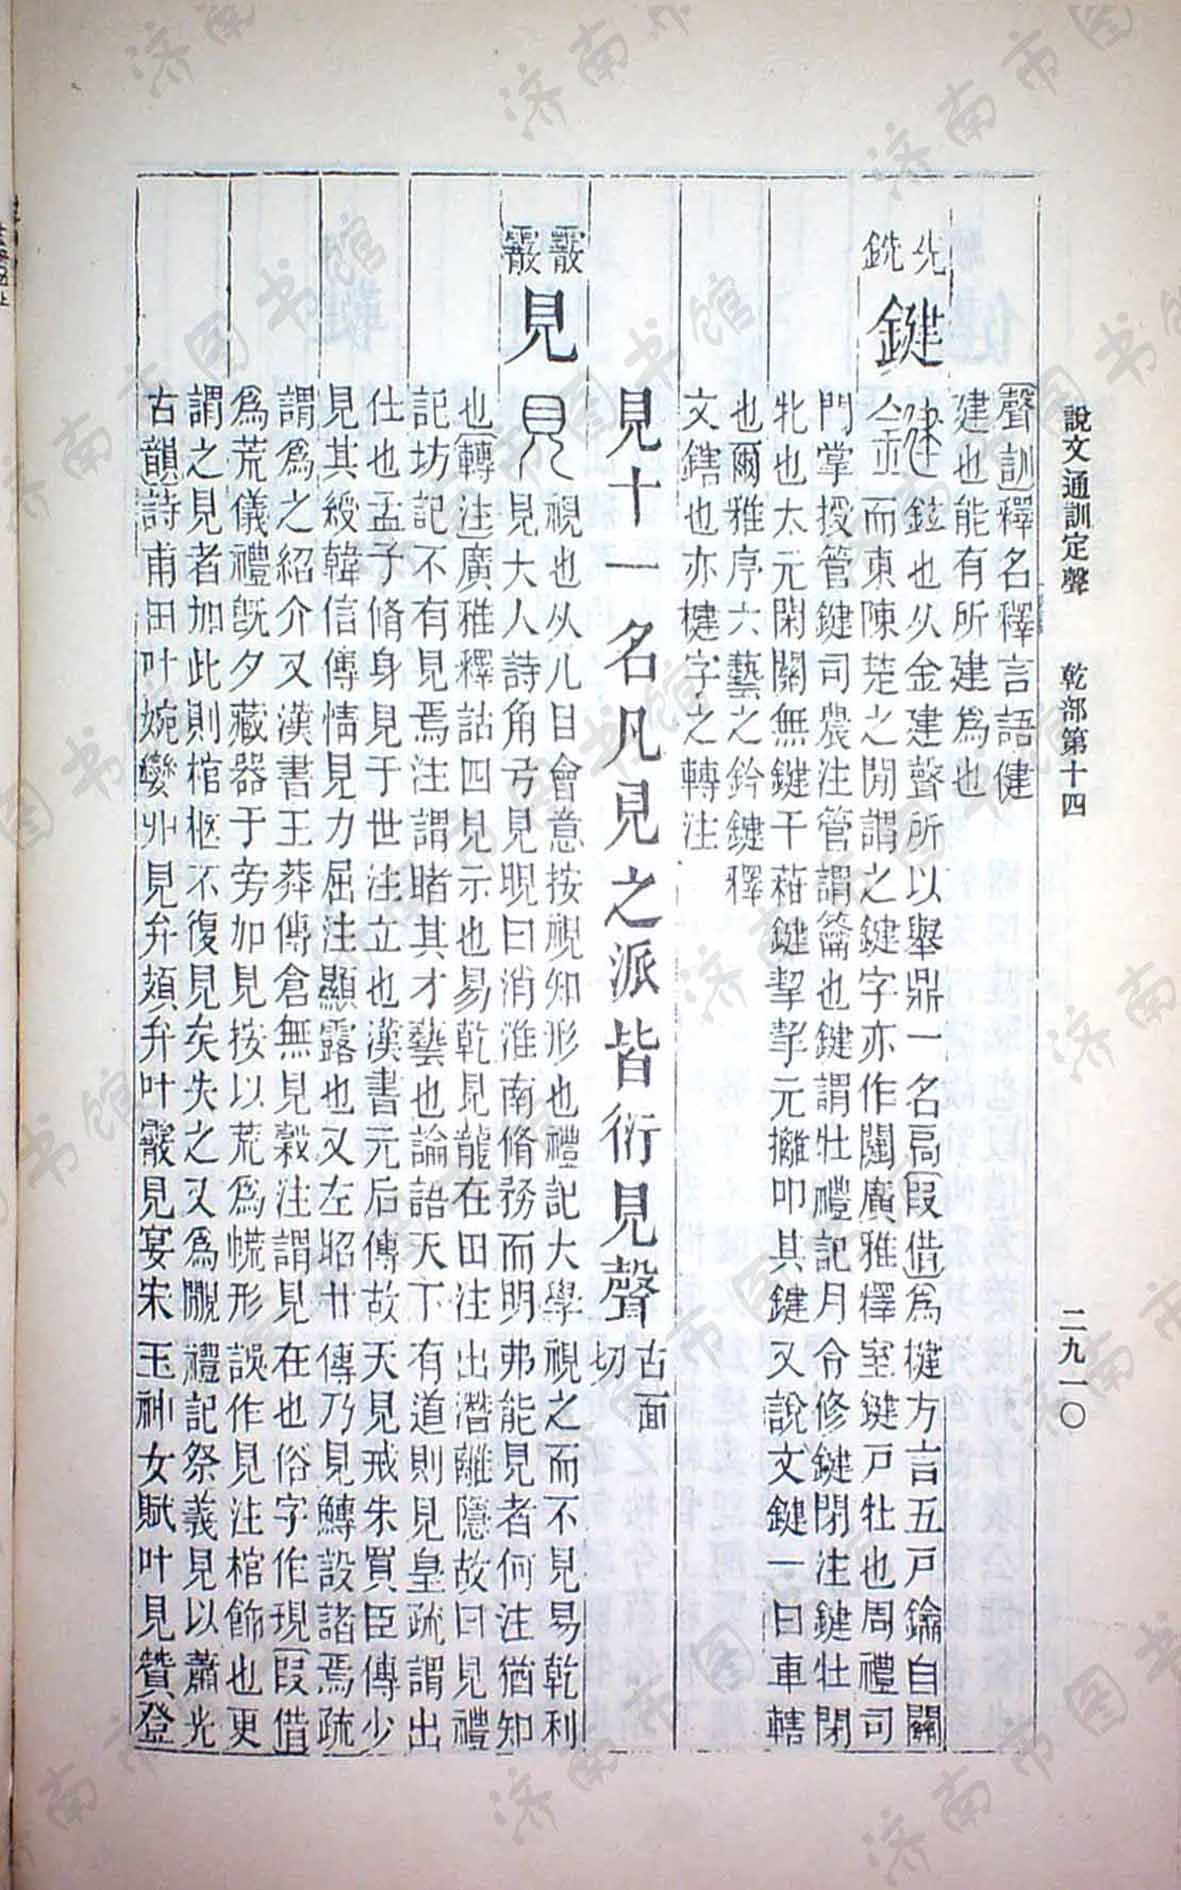 說文通訓定聲 乾部第十四 二九一〇
聲訓釋名釋言語健
建也能有所建爲也
銑 先
鍵
鍵鉉也从金建聲所以舉鼎一名扃叚借爲楗方言五戶鑰自關
而東陳楚之閒謂之鍵字亦作闥廣雅釋室鍵戶牡也周禮司
門掌授管鍵司農注管謂籥也鍵謂牡禮記月令修鍵閉注鍵牡閉
牝也太元閑關無鍵干藉鍵挈挈元攡叩其鍵又說文鍵一曰車轄
也爾雅序六藝之鈐鍵釋
文鎋也亦楗字之轉注
見十一名凡見之派皆衍見聲 古面切
霰 霰
見
見視也从儿目會意按視知形也禮記大學視之而不見易乾利
見大人詩角弓見晛曰消淮南脩務而明弗能見者何注猶知
也轉注廣雅釋詁四見示也易乾見龍在田注出潛離隱故曰見禮
記坊記不有見焉注謂睹其才藝也論語天下有道則見皇疏謂出
仕也孟子脩身見于世注立也漢書元后傳故天見戒朱買臣傳少
見其綬韓信傳情見力屈注顯露也又左昭卄傳乃見鱄設諸焉疏
謂爲之紹介又漢書王莽傳倉無見穀注謂見在也俗字作現叚借
爲荒儀禮旣夕藏器于旁加見按以荒爲㡆形誤作見注棺飾也更
謂之見者加此則棺柩不復見矣失之又爲覵禮記祭義見以蕭光
古韻詩甫田叶婉孌丱見弁頍弁叶霰見宴宋玉神女賦叶見贊登